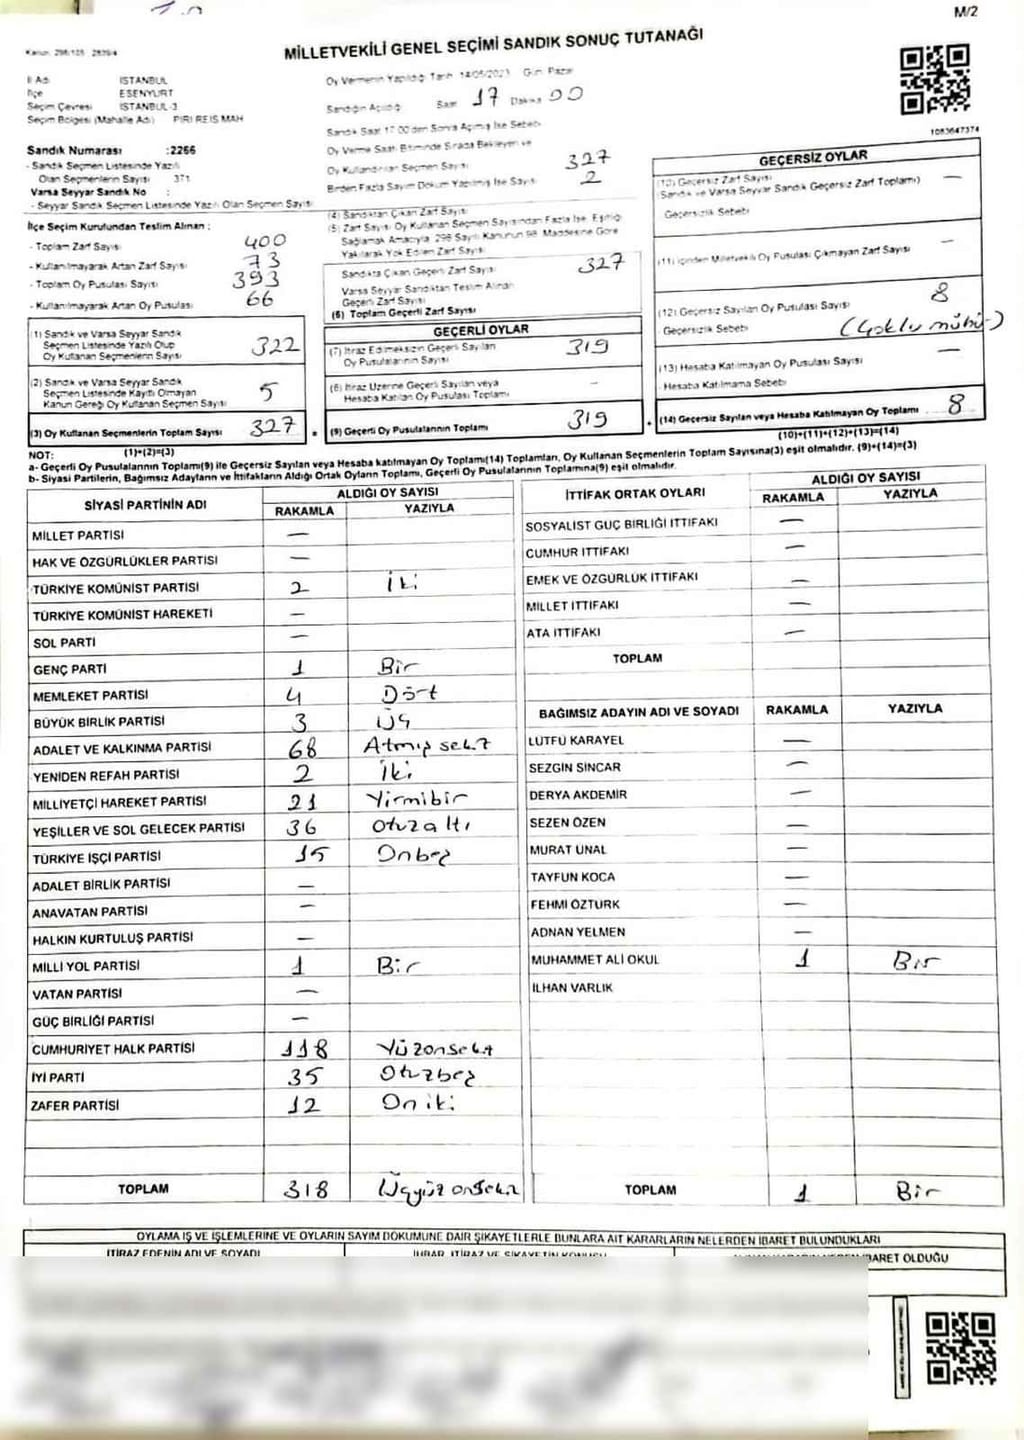 M/2
MİLLETVEKİLİ GENEL SEÇİMİ SANDIK SONUÇ TUTANAĞI
Kanun: 298/105 2839/4
İl Adı İSTANBUL
İlçe ESENYURT
Seçim Çevresi İSTANBUL-3
Seçim Bölgesi (Mahalle Adı) PİRİ REİS MAH
Sandık Numarası :2266
- Sandık Seçmen Listesinde Yazılı
Olan Seçmenlerin Sayısı 371
Varsa Seyyar Sandık No :
- Seyyar Sandık Seçmen Listesinde Yazılı Olan Seçmen Sayısı
İlçe Seçim Kurulundan Teslim Alınan :
- Toplam Zarf Sayısı 400
- Kullanılmayarak Artan Zarf Sayısı 73
- Toplam Oy Pusulası Sayısı 393
- Kullanılmayarak Artan Oy Pusulası 66
(1) Sandık ve Varsa Seyyar Sandık
Seçmen Listesinde Yazılı Olup
Oy Kullanan Seçmenlerin Sayısı 322
(2) Sandık ve Varsa Seyyar Sandık
Seçmen Listesinde Kayıtlı Olmayan
Kanun Gereği Oy Kullanan Seçmen Sayısı 5
(3) Oy Kullanan Seçmenlerin Toplam Sayısı 327
(1)+(2)=(3)
Oy Vermenin Yapıldığı Tarih 14/05/2023 Gün Pazar
Sandığın Açıldığı Saat 17 Dakika 00
Sandık Saat 17.00'den Sonra Açılmış İse Sebebi
Oy Verme Saati Bitiminde Sırada Bekleyen ve
Oy Kullandırılan Seçmen Sayısı 327
Birden Fazla Sayım Döküm Yapılmış İse Sayısı 2
(4) Sandıktan Çıkan Zarf Sayısı
(5) Zarf Sayısı Oy Kullanan Seçmen Sayısından Fazla İse, Eşitliği
Sağlamak Amacıyla 298 Sayılı Kanunun 98. Maddesine Göre
Yakılarak Yok Edilen Zarf Sayısı
Sandıkta Çıkan Geçerli Zarf Sayısı 327
Varsa Seyyar Sandıktan Teslim Alınan
Geçerli Zarf Sayısı
(6) Toplam Geçerli Zarf Sayısı
GEÇERLİ OYLAR
(7) İtiraz Edilmeksizin Geçerli Sayılan
Oy Pusulalarının Sayısı 319
(8) İtiraz Üzerine Geçerli Sayılan veya
Hesaba Katılan Oy Pusulası Toplamı -
(9) Geçerli Oy Pusulalarının Toplamı 319
1083647374
GEÇERSİZ OYLAR
(10) Geçersiz Zarf Sayısı —
(Sandık ve Varsa Seyyar Sandık Geçersiz Zarf Toplamı)
Geçersizlik Sebebi
(11) İçinden Milletvekili Oy Pusulası Çıkmayan Zarf Sayısı —
(12) Geçersiz Sayılan Oy Pusulası Sayısı 8
Geçersizlik Sebebi (Çoklu mühür)
(13) Hesaba Katılmayan Oy Pusulası Sayısı —
- Hesaba Katılmama Sebebi
(14) Geçersiz Sayılan veya Hesaba Katılmayan Oy Toplamı 8
(10)+(11)+(12)+(13)=(14)
NOT:
a- Geçerli Oy Pusulalarının Toplamı(9) ile Geçersiz Sayılan veya Hesaba katılmayan Oy Toplamı(14) Toplamları, Oy Kullanan Seçmenlerin Toplam Sayısına(3) eşit olmalıdır. (9)+(14)=(3)
b- Siyasi Partilerin, Bağımsız Adayların ve İttifakların Aldığı Ortak Oyların Toplamı, Geçerli Oy Pusulalarının Toplamına(9) eşit olmalıdır.
SİYASİ PARTİNİN ADI ALDIĞI OY SAYISI
RAKAMLA YAZIYLA
MİLLET PARTİSİ —
HAK VE ÖZGÜRLÜKLER PARTİSİ —
TÜRKİYE KOMÜNİST PARTİSİ 2 İki
TÜRKİYE KOMÜNİST HAREKETİ —
SOL PARTİ —
GENÇ PARTİ 1 Bir
MEMLEKET PARTİSİ 4 Dört
BÜYÜK BİRLİK PARTİSİ 3 Üç
ADALET VE KALKINMA PARTİSİ 68 Atmış sekiz
YENİDEN REFAH PARTİSİ 2 İki
MİLLİYETÇİ HAREKET PARTİSİ 21 Yirmibir
YEŞİLLER VE SOL GELECEK PARTİSİ 36 Otuzaltı
TÜRKİYE İŞÇİ PARTİSİ 15 Onbeş
ADALET BİRLİK PARTİSİ —
ANAVATAN PARTİSİ —
HALKIN KURTULUŞ PARTİSİ —
MİLLİ YOL PARTİSİ 1 Bir
VATAN PARTİSİ —
GÜÇ BİRLİĞİ PARTİSİ —
CUMHURİYET HALK PARTİSİ 118 Yüzonsekiz
İYİ PARTİ 35 Otuzbeş
ZAFER PARTİSİ 12 On iki
TOPLAM 318 Üçyüz onsekiz
İTTİFAK ORTAK OYLARI ALDIĞI OY SAYISI
RAKAMLA YAZIYLA
SOSYALİST GÜÇ BİRLİĞİ İTTİFAKI —
CUMHUR İTTİFAKI —
EMEK VE ÖZGÜRLÜK İTTİFAKI —
MİLLET İTTİFAKI —
ATA İTTİFAKI —
TOPLAM
BAĞIMSIZ ADAYIN ADI VE SOYADI RAKAMLA YAZIYLA
LÜTFÜ KARAYEL —
SEZGİN SİNCAR —
DERYA AKDEMİR —
SEZEN ÖZEN —
MURAT ÜNAL —
TAYFUN KOCA —
FEHMİ ÖZTÜRK —
ADNAN YELMEN —
MUHAMMET ALİ OKUL 1 Bir
İLHAN VARLIK
TOPLAM 1 Bir
OYLAMA İŞ VE İŞLEMLERİNE VE OYLARIN SAYIM DÖKÜMÜNE DAİR ŞİKAYETLERLE BUNLARA AİT KARARLARIN NELERDEN İBARET BULUNDUKLARI
İTİRAZ EDENİN ADI VE SOYADI İHBAR, İTİRAZ VE ŞİKAYETİN KONUSU İBARET OLDUĞU